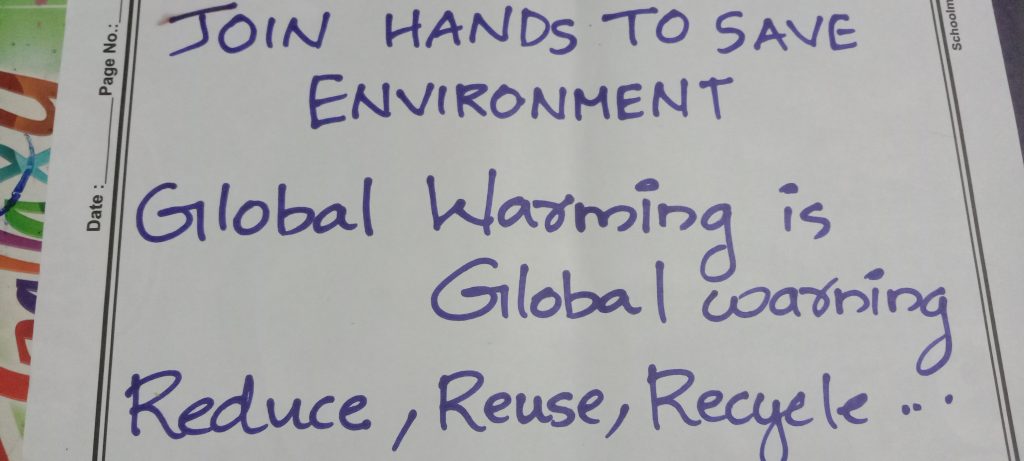 JOIN HANDS TO SAVE
ENVIRONMENT
Global Warming is
Global warning
Reduce, Reuse, Recycle ...
Date :
Page No.:
Schoolm